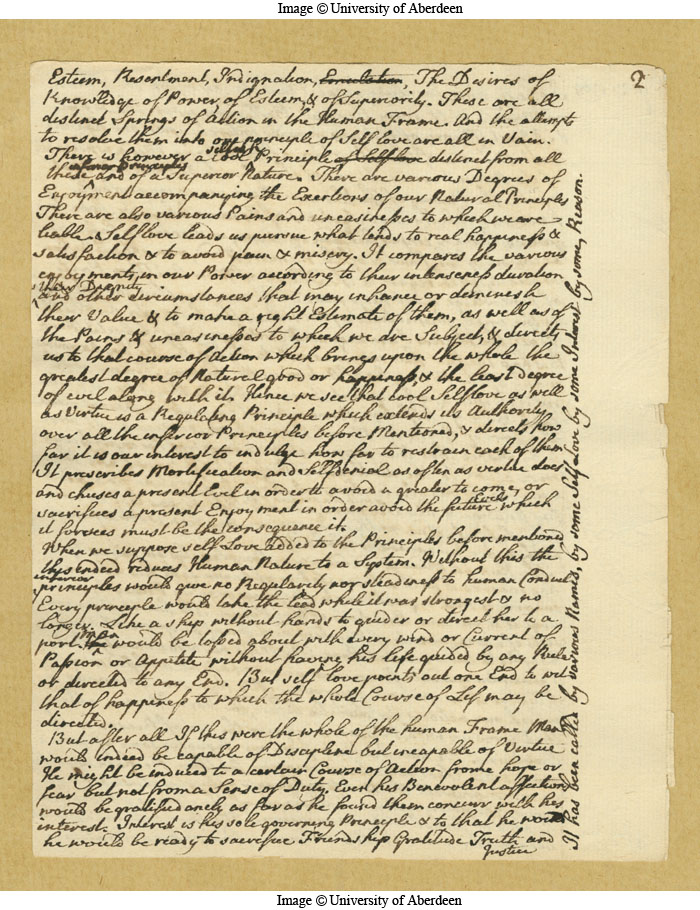 Image © University of Aberdeen
2
Esteem, Resentment, Indignation, Emulation, The Desires of
Knowledge of Power, of Esteem, & of Superiority. These are all
distinct Springs of Action in the Human Frame. And the attempts
to resolve them into one principle of Self love are all in Vain.
selfish
There is however a cool Principle of Self love distinct from all
these and of a Superior Nature. There are various Degrees of
Enjoyment accompanying the Exertions of our Natural Principles
There are also various Pains and uneasinesses to which we are
liable. Self love leads us pursue what tends to real happiness &
satisfaction & to avoid pain & misery. It compares the various
enjoyments, in our Power according to their intenseness duration
their Dignity
and other circumstances that may inhance or diminish
their Value & to make a right Estimate of them, as well as of
the Pains & uneasinesses to which we are Subject, & directs
us to that course of Action which brings upon the whole the
greatest degree of Natural good or happiness, & the least Degree
of evil along with it. Hence we see that cool Self love as well
as Virtue is a Regulating Principle which extends its Authority
over all the inferior Principles before Mentioned, & directs how
far it is our interest to indulge how far to restrain each of them
It prescribes Mortification and Self denial as often as virtue does
and chuses a present Evil in order to avoid a greater to come, or
Evils
sacrifices a present Enjoyment in order avoid the future which
it forsees must be the consequence it.
When we suppose self Love added to the Principles before mentioned
this indeed reduces Human Nature to a System. Without this the
inferior
principles would give no Regularity nor steadiness to human Conduct
Every principle would take the lead while it was strongest & no
longer. Like a ship without hands to guide or direct her to a
Man
port. he would be tossed about with every wind or Current of
Passion or Appetite without having his life guided by any Rule
or directed to any End. But self love points out one End to wit
that of happiness to which the whole Course of Life may be
directed.
But after all If this were the whole of the human Frame Man
would indeed be capable of Discipline but incapable of Virtue
He might be induced to a certain Course of Action from hope or
fear but not from a Sense of Duty. Even his Benevolent affections
would be gratified only as far as he found them concurr with his
interest. Interest is his sole governing Principle & to that he would
he would be ready to sacrifice Friendship Gratitude Truth and
Justice
It has been called by various Names, by some Self Love by some Interest by some, Reason.
Image © University of Aberdeen